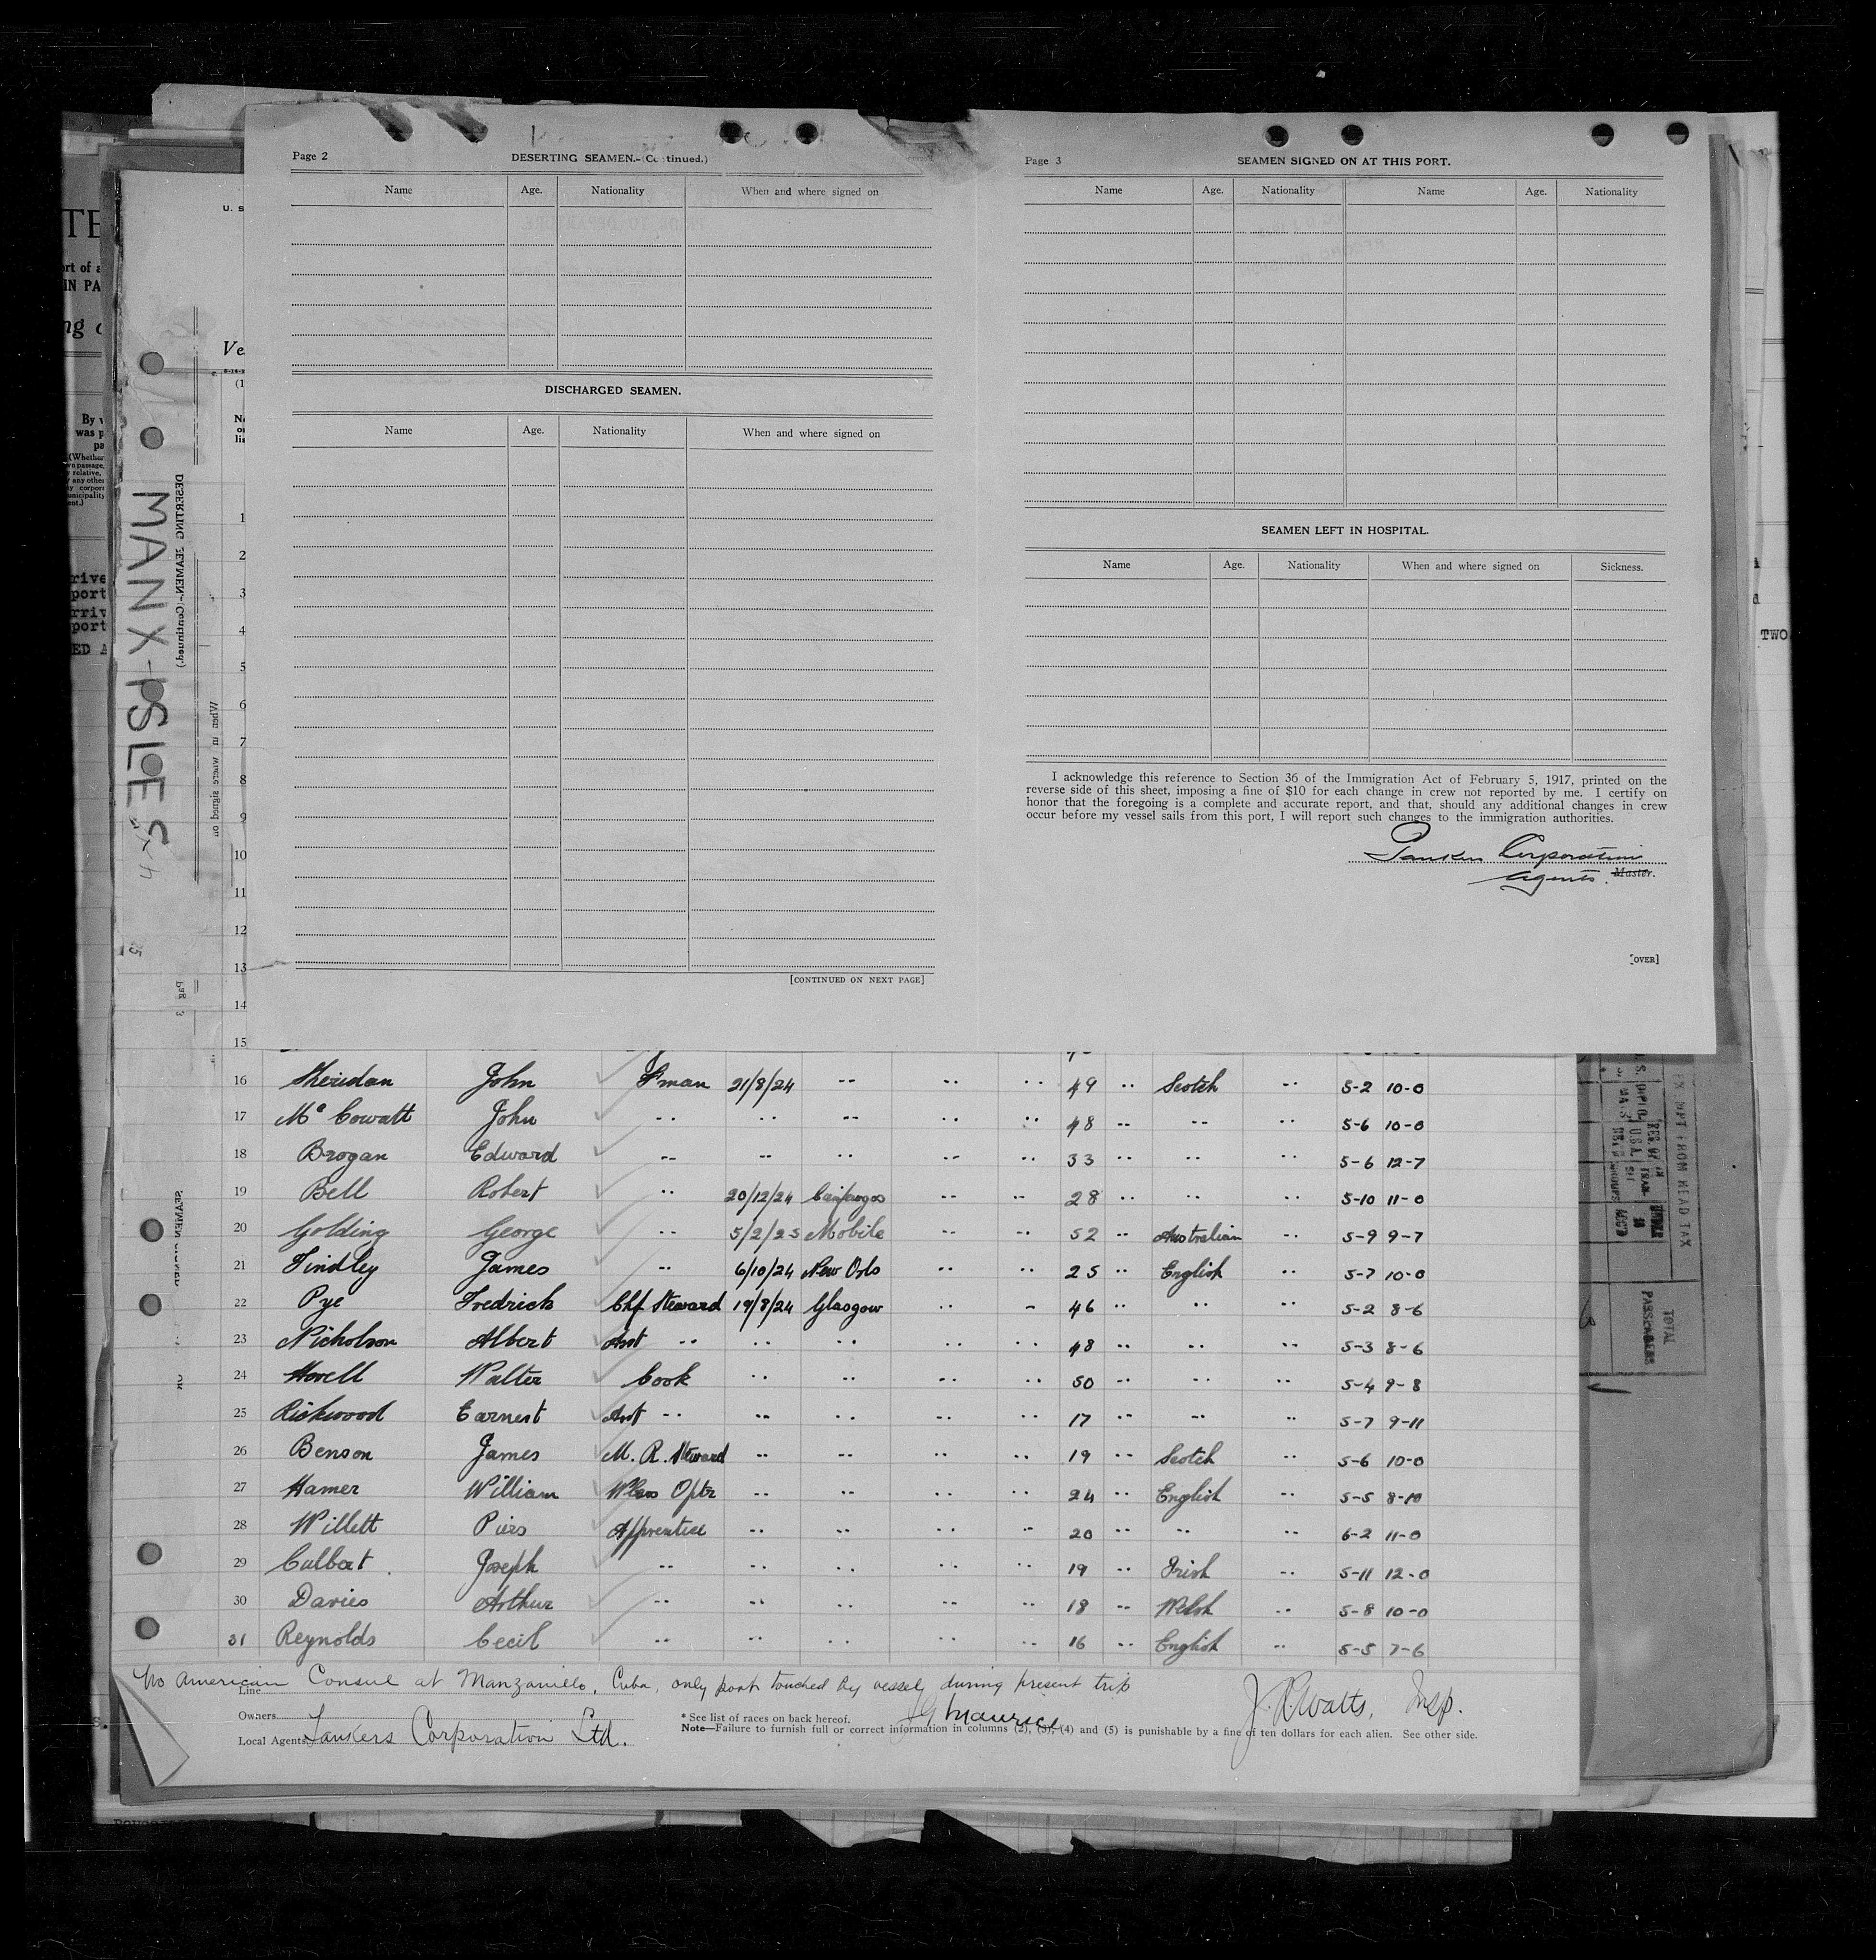 Page 2
DESERTING SEAMEN.-(Continued.)
Name Age. Nationality When and where signed on
DISCHARGED SEAMEN.
Name Age. Nationality When and where signed on
[CONTINUED ON NEXT PAGE]
Page 3
SEAMEN SIGNED ON AT THIS PORT.
Name Age. Nationality Name Age. Nationality
SEAMEN LEFT IN HOSPITAL.
Name Age. Nationality When and where signed on Sickness.
I acknowledge this reference to Section 36 of the Immigration Act of February 5, 1917, printed on the
reverse side of this sheet, imposing a fine of $10 for each change in crew not reported by me. I certify on
honor that the foregoing is a complete and accurate report, and that, should any additional changes in crew
occur before my vessel sails from this port, I will report such changes to the immigration authorities.
Tankers Corporation
Agents. Master.
[OVER]
MANX-ISLES
DESERTING SEAMEN.-(Continued.)
U. S
Ve
1
2
3
4
5
6
7
8
9
10
11
12
13
14
15
16 Sheridan John F'man 21/8/24 -- -- -- 49 -- Scotch -- 5-2 10-0
17 Mc Cowatt John -- -- -- -- -- 48 -- -- -- 5-6 10-0
18 Brogan Edward -- -- -- -- -- 33 -- -- -- 5-6 12-7
19 Bell Robert -- 20/12/24 -- -- 28 -- -- -- 5-10 11-0
20 Golding George -- 5/2/25 Mobile -- -- 52 -- Australian -- 5-9 9-7
21 Findley James -- 6/10/24 New Orls -- -- 25 -- English -- 5-7 10-0
22 Pye Fredrick Chf Steward 19/8/24 Glasgow -- - 46 -- -- -- 5-2 8-6
23 Nicholson Albert Asst -- -- -- -- -- 48 -- -- -- 5-3 8-6
24 Hovell Walter Cook -- -- -- -- 50 -- -- -- 5-4 9-8
25 Rickwood Earnest Asst -- -- -- -- -- 17 -- -- -- 5-7 9-11
26 Benson James M. R. Steward -- -- -- -- 19 -- Scotch -- 5-6 10-0
27 Hamer William Wless Optr -- -- -- -- 24 -- English -- 5-5 8-10
28 Willett Piers Apprentice -- -- -- -- 20 -- -- -- 6-2 11-0
29 Culbert Joseph -- -- -- -- -- 19 -- Irish -- 5-11 12-0
30 Davies Arthur -- -- -- -- -- 18 -- Welsh -- 5-8 10-0
31 Reynolds Cecil -- -- -- -- -- 16 -- English -- 5-5 7-6
No American Consul at Manzanillo, Cuba, only port touched by vessel during present trip
J. R. Watts, Insp.
Line
Owners
Local Agents Tankers Corporation Ltd.
* See list of races on back hereof.
Maurice
Note—Failure to furnish full or correct information in columns (2), (3), (4) and (5) is punishable by a fine of ten dollars for each alien. See other side.
EXEMPT FROM HEAD TAX
TOTAL
PASSENGERS
TWO